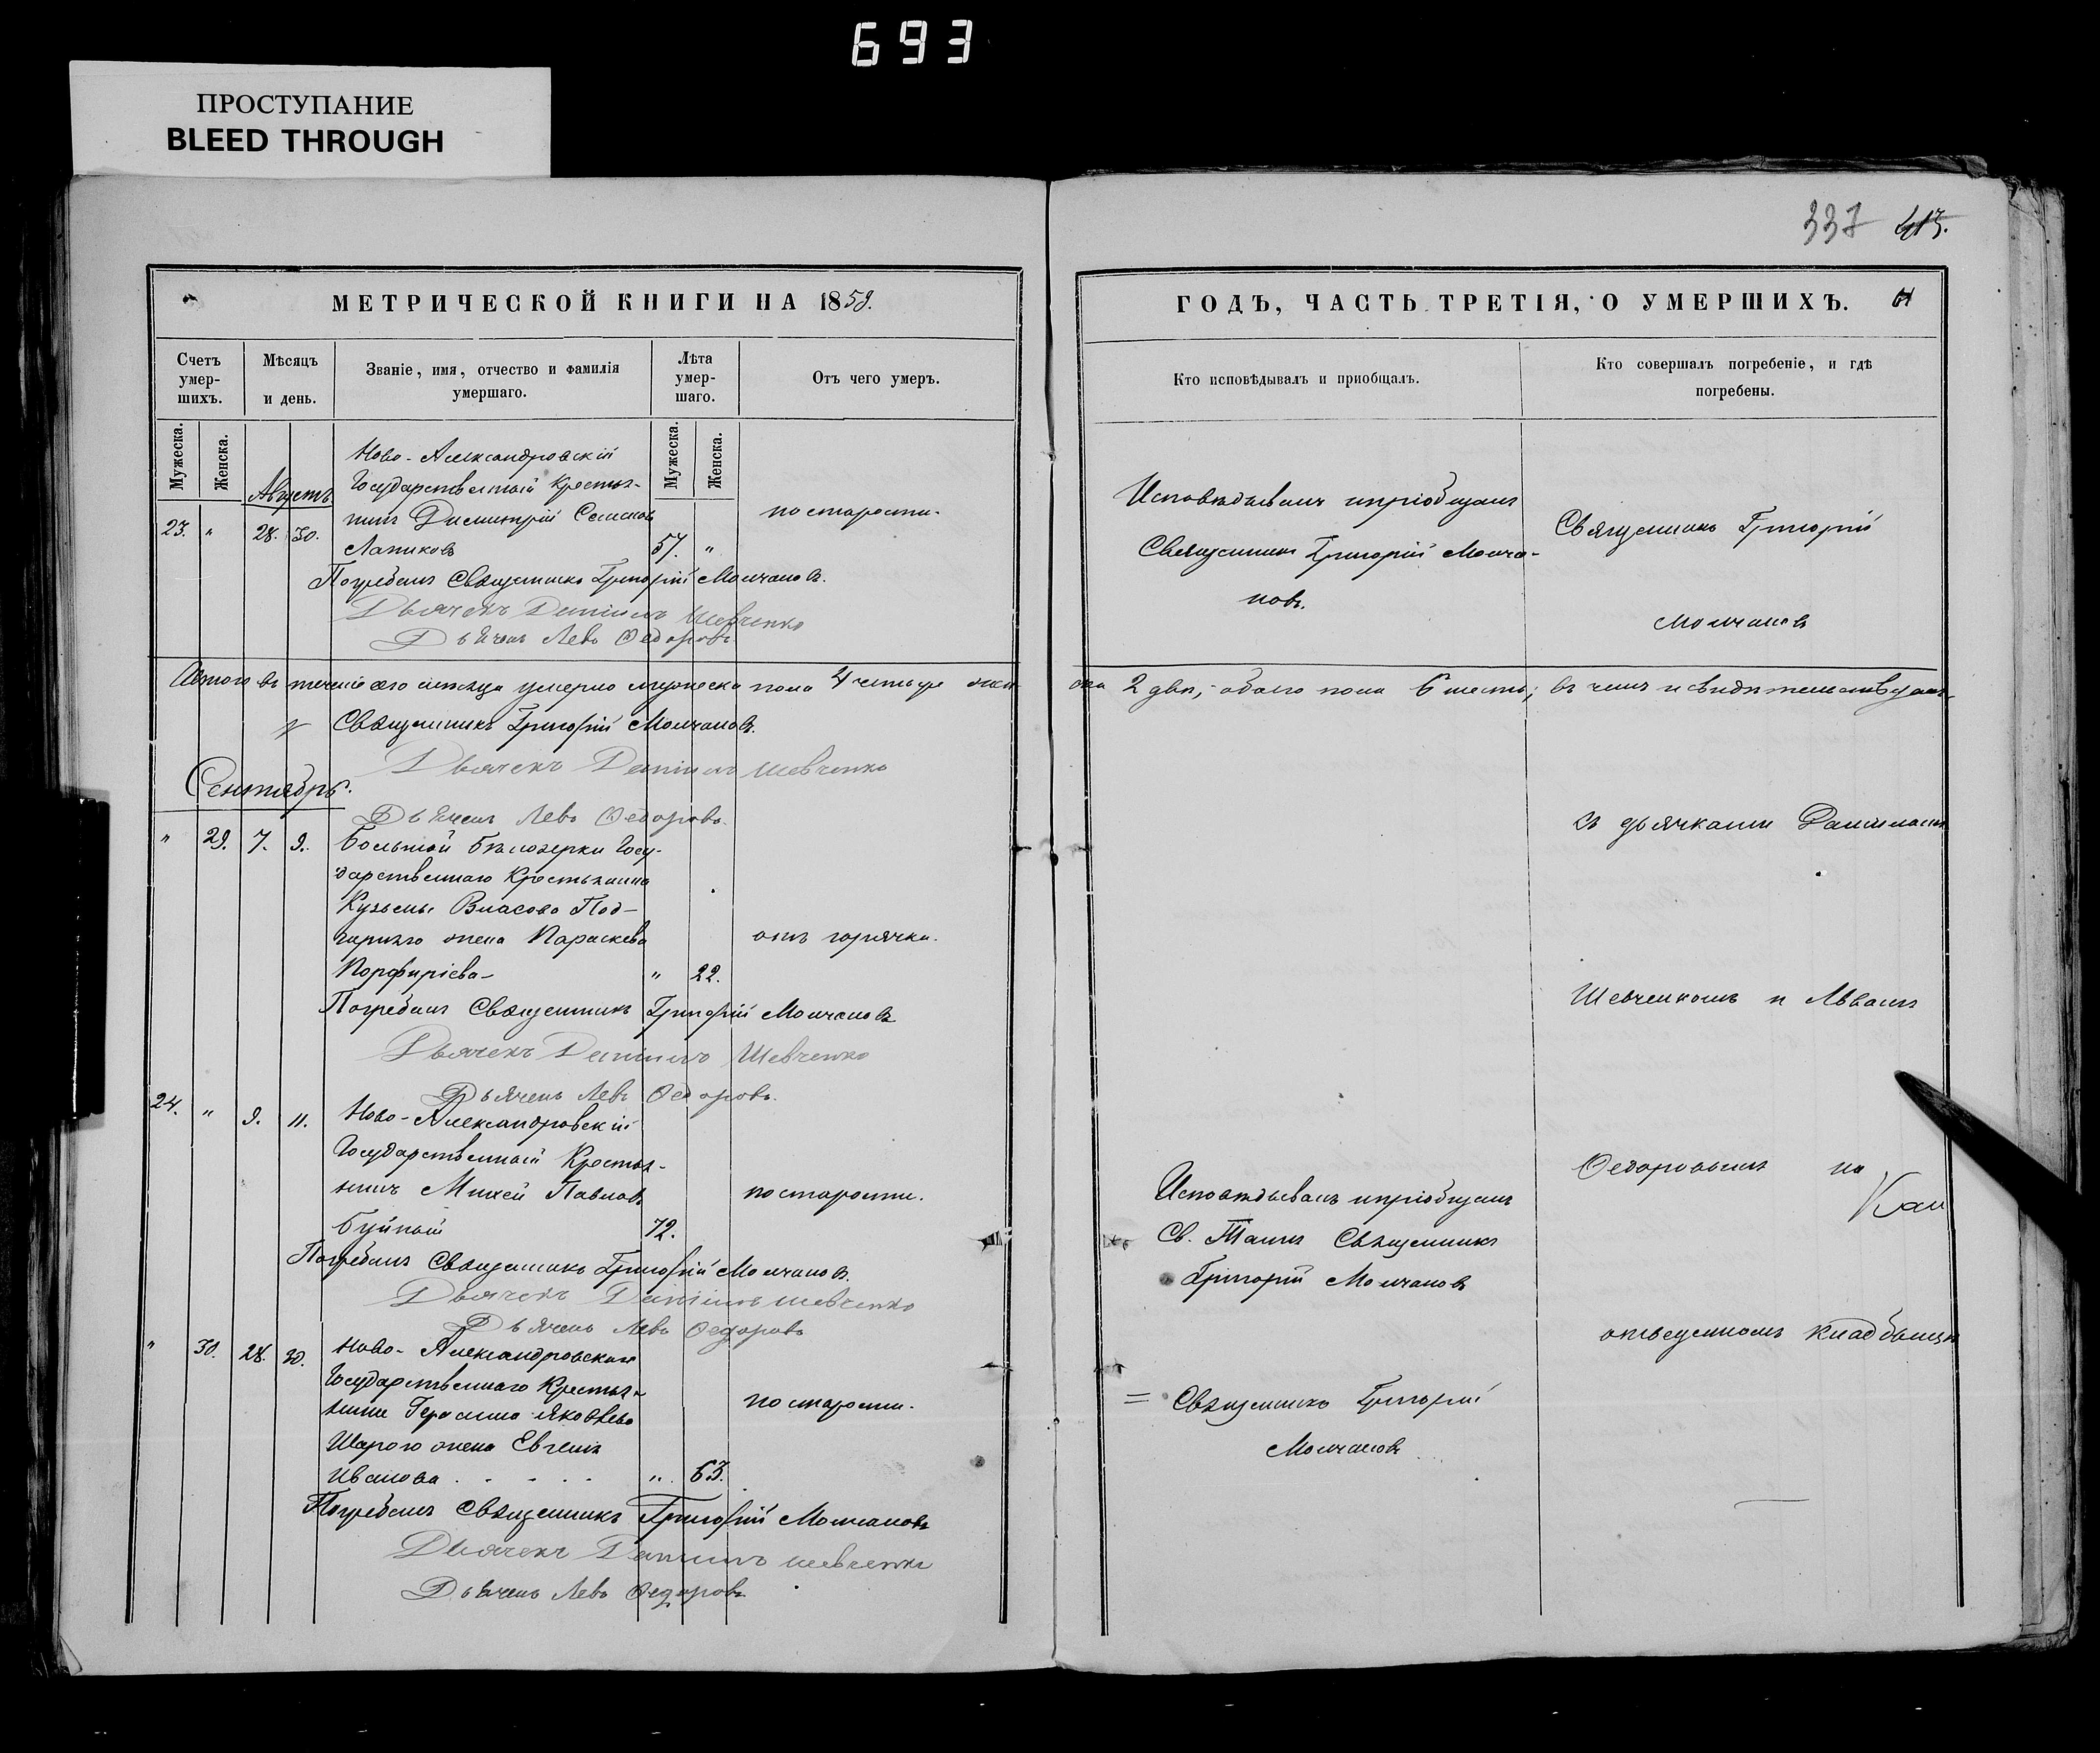 693
ПРОСТУПАНИЕ
BLEED THROUGH
337 413.
МЕТРИЧЕСКОЙ КНИГИ НА 1859.
Счетъ умер-шихъ.
Мѣсяцъ и день.
Званіе, имя, отчество и фамилія умершаго.
Лѣта умер-шаго.
Отъ чего умеръ.
Мужеска.
Женска.
Мужеска.
Женска.
Августъ
Ново-Александровскій
Государственный Крестья-
нинъ Димитрій Семеновъ
23. " 28. 30. Лапиковъ 57. " по старости.
Погребалъ Священникъ Григорій Молчановъ.
Дьячекъ Даніилъ Шевченко
Дьячекъ Левъ Ѳедоровъ
Итого въ теченіе сего мѣсяца умерло мужеска пола 4 четыре жен-
Священникъ Григорій Молчановъ.
Дьячекъ Даніилъ Шевченко
Сентябрь.
Дьячекъ Левъ Ѳедоровъ.
" 29. 7. 9. Большой Бѣлозерки Госу-
дарственнаго Крестьянина
Кузьмы Власова Под-
женa Параскева отъ горячки.
Порфиріева " 22.
Погребалъ Священникъ Григорій Молчановъ
Дьячекъ Даніилъ Шевченко
Дьячекъ Левъ Ѳедоровъ.
24. " 9. 11. Ново-Александровскій
Государственный Крестья-
нинъ Михей Павловъ по старости.
Буйный 72.
Погребалъ Священникъ Григорій Молчановъ.
Дьячекъ Даніилъ Шевченко
Дьячекъ Левъ Ѳедоровъ
" 30. 28. 30. Ново-Александровскаго
Государственнаго Крестья-
нина Герасима Яковлева по старости.
Шарого жена Евгенія
Иванова " 63.
Погребалъ Священникъ Григорій Молчановъ
Дьячекъ Даніилъ Шевченко
Дьячекъ Левъ Ѳедоровъ
ГОДЪ, ЧАСТЬ ТРЕТІЯ, О УМЕРШИХЪ.
Кто исповѣдывалъ и приобщалъ.
Кто совершалъ погребеніе, и гдѣ погребены.
Исповѣдывалъ и пріобщалъ
Священникъ Григорій Молча-
новъ.
Священникъ Григорій
Молчановъ
ска 2 двѣ, обоего пола 6 шесть; въ чемъ и свидѣтельствуемъ
съ дьячками Данииломъ
Шевченкомъ и Львомъ
Ѳедоровымъ на
отведенномъ кладбищѣ
Исповѣдывалъ и пріобщалъ
Св. Таинъ Священникъ
Григорій Молчановъ
= Священникъ Григорій
Молчановъ